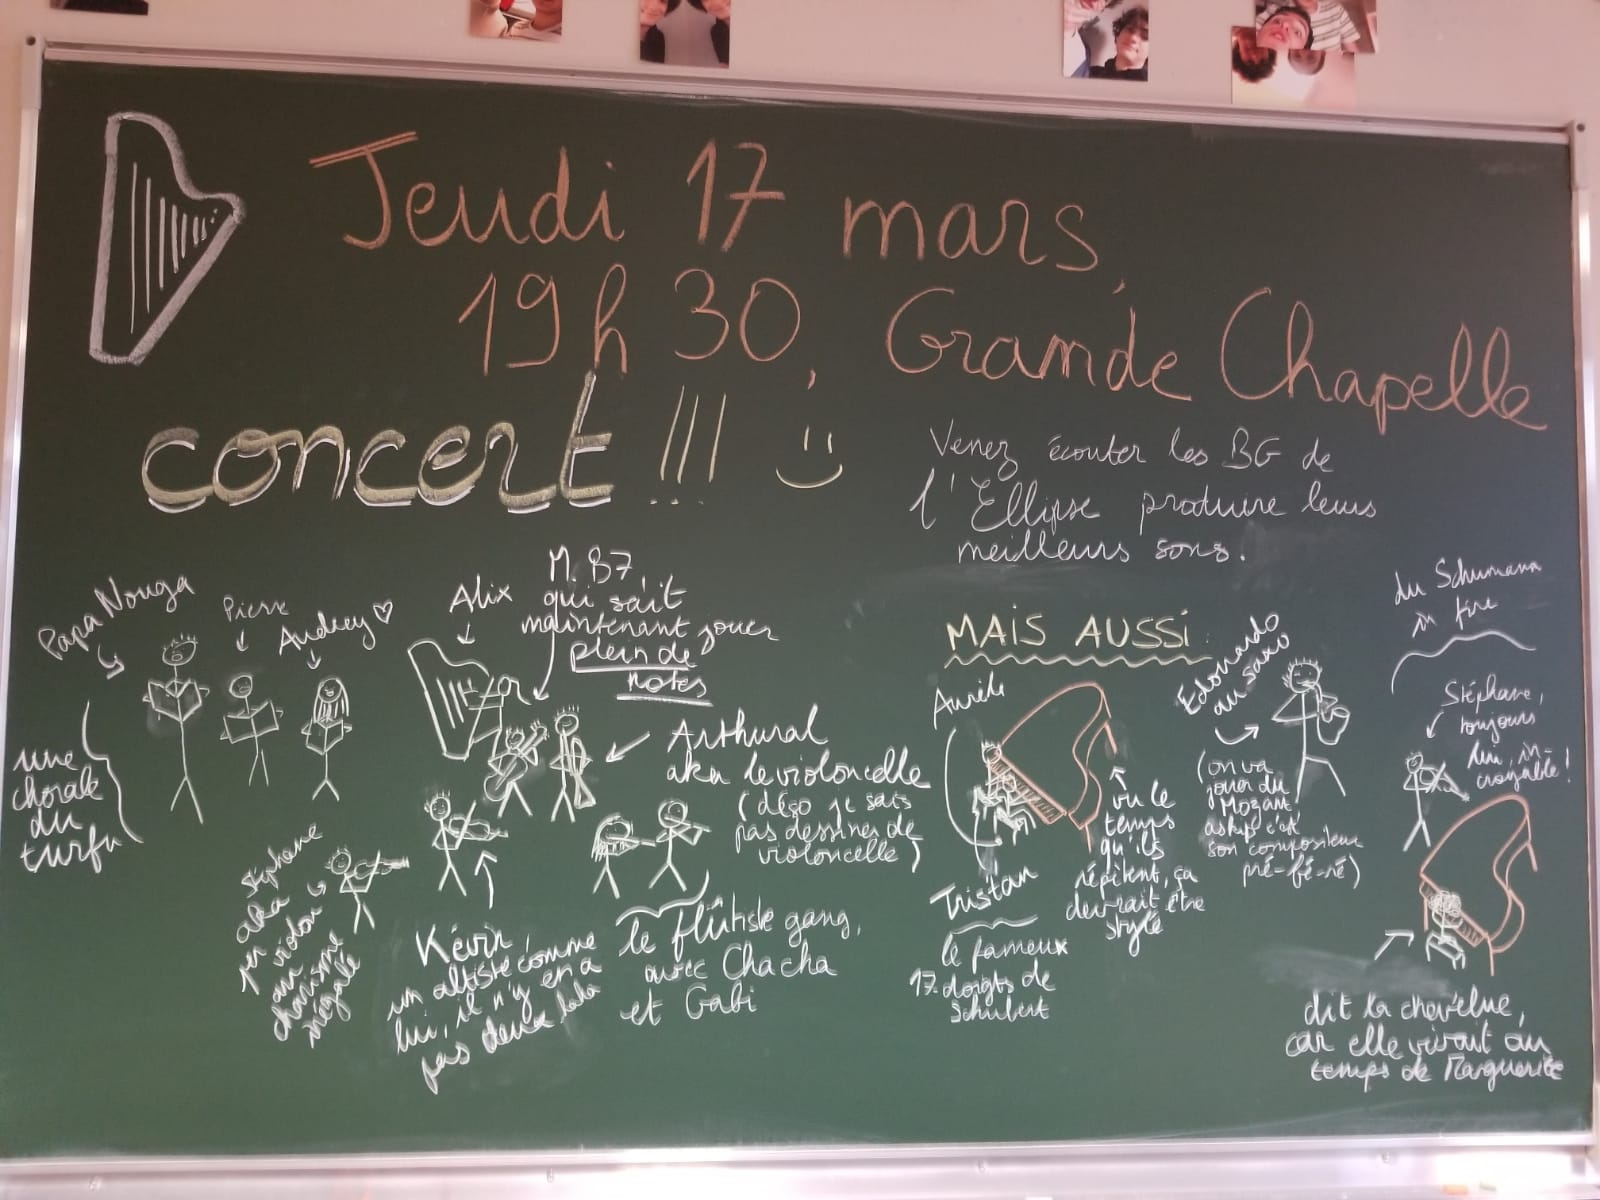 Jeudi 17 mars,
19h30, Grande Chapelle
concert !!!
Venez écouter les BG de
l'Ellipse produire leurs
meilleurs sons.
Papa Nouga
Pierre
Audrey
une
chorale
du
turfu
Alix
M. B7
qui sait
maintenant jouer
plein de
notes
Arthural
aka le violoncelle
(déso je sais
pas dessiner de
violoncelle)
Stéphane
aka
violon
au
charisme
inégalé
Kévin
un altiste comme
lui, il n'y en a
pas deux haha
le flûtiste gang,
avec Chacha
et Gabi
MAIS AUSSI :
Aurèle
Tristan
le fameux
17 doigts de
Schubert
vu le
temps
qu'ils
répètent, ça
devrait être
stylé
Edouardo
au saxo
(on va
jouer du
Mozart
askip c'est
son compositeur
pré-fé-ré)
du Schumann
in fine
Stéphane,
toujours
lui, in-
croyable !
dit la chevelue,
car elle vivait au
temps de Marguerite